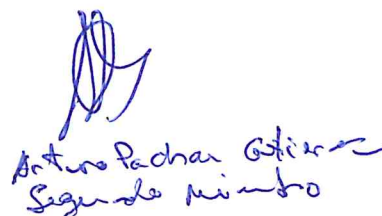 Arturo Pachar Gutierrez
Segundo Miembro